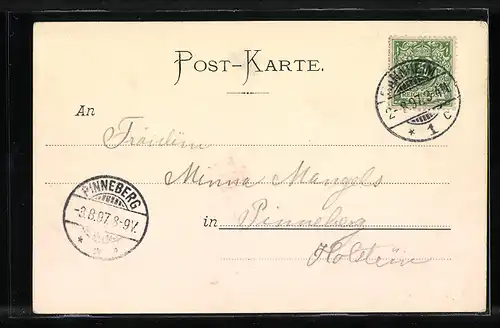 POST-KARTE.
An
Fräulein
Minna Mangels
in Pinneberg
Holstein
PINNEBERG
-3.8.97. 8-9V.
* 1 c